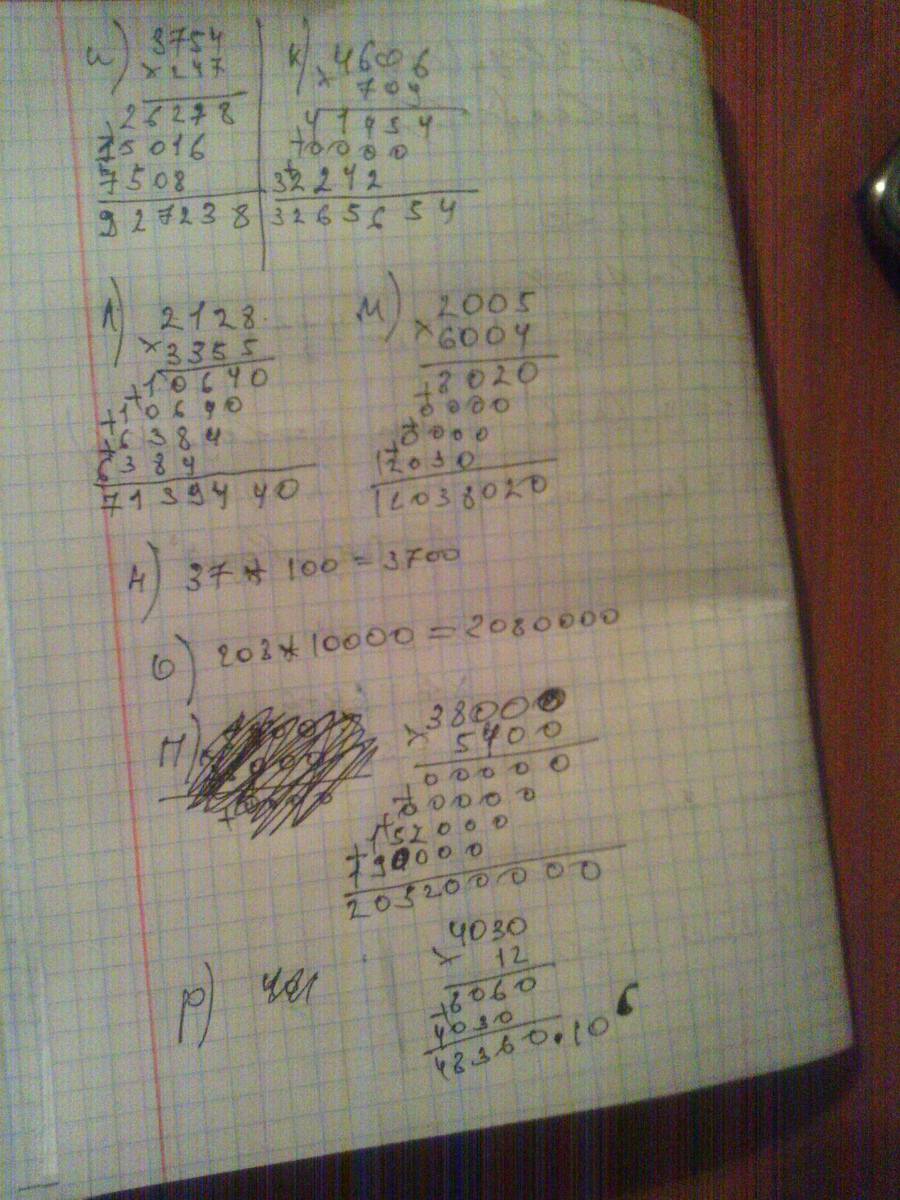 и) 3754
× 247
26278
+ 15016
+ 7508
927238
к) 4606
× 709
41454
+ 0000
+ 32242
3265654
л) 2128
× 3355
10640
+ 10640
+ 6384
+ 6384
7139440
м) 2005
× 6004
8020
+ 0000
+ 0000
+ 12030
12038020
н) 37 * 100 = 3700
о) 208 * 10000 = 2080000
п)
38000
× 5400
00000
+ 00000
+ 152000
+ 190000
205200000
р)
4030
× 12
8060
+ 4030
48360 · 10 6